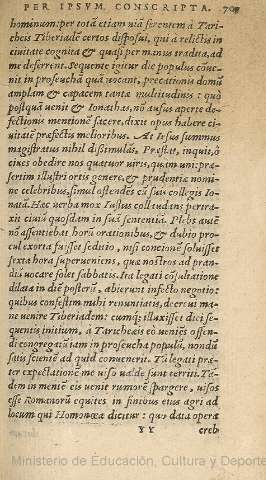 PER IPSVM CONSCRIPTA. 709
hominum: per totã etiam viã ferentem à Tari-
cheis Tiberiadẽ certos disposui, qui à relictis in
ciuitate cognita & quasi per minus tradita, ad
me deferrent. Sequente igitur die populus conue-
nit in proseucha quã vocant, precationis domũ
amplam & capacem tantæ multitudinis: quò
postquã venit & Ionathas, nõ ausus apertè de-
fectionis mentionẽ facere, dixit opus habere ci-
uitatẽ præfectis melioribus. At Iesus summus
magistratus nihil dissimulãs, Præstat, inquit, ô
ciues obedire nos quatuor viris, quàm uni: præ-
sertim illustri ortis genere, & prudentiæ nomi-
ne celebribus, simul ostendẽs cũ suis collegis Io-
natã. Hæc verba mox Iustus collaudans pertra-
xit ciuiũ quosdam in suã sententiã. Plebs autẽ
nõ assentiebat horũ orationibus, & dubio pro-
cul exorta fuisset seditio, nisi concionẽ soluisset
sexta hora superueniens, qua nostros ad prandi-
ũ vocare solet sabbatis. Ita legati cõsultatione
dilata in diẽ posterũ, abierunt infecto negotio:
quibus confestim mihi renuntiatis, decreui ma-
ne venire Tiberiadem: cumq; illuxisset diei se-
quentis initium, à Taricheis eò veniẽs offen-
di congregatũ iam in proseucha populũ, nondũ
satis scientẽ ad quid conuenerit. Tũ legati præ-
ter expectationẽ me viso valde sunt territi. Tã-
dem in mentẽ eis venit rumorẽ spargere, visos
esse Romanorũ equites in finibus eius agri ad
locum qui Homonœa dicitur: quo data opera
YY creb
Ministerio de Educación, Cultura y Deporte